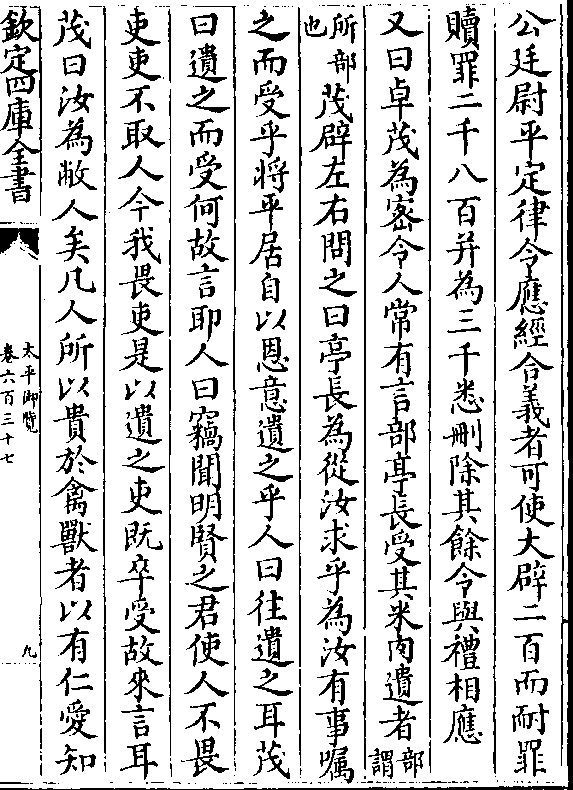 公廷尉平定律令應經合義者可使大辟二百而耐罪
贖罪二千八百并為三千悉刪除其餘令與禮相應
又曰卓茂為宻令人常有言部亭長受其米肉遺者部謂
所部也茂辟左右問之曰亭長為從汝求乎為汝有事嘱
之而受乎將平居自以恩意遺之乎人曰往遺之耳茂
曰遺之而受何故言耶人曰竊聞明賢之君使人不畏
吏吏不取人今我畏吏是以遺之吏既卒受故來言耳
茂曰汝為敝人矣凡人所以貴於禽獸者以有仁愛知
欽定四庫全書
太平御覽
卷六百三十七
九